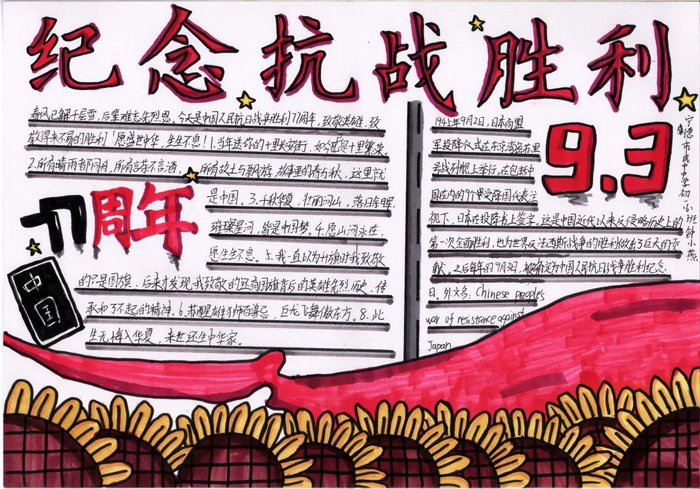 纪念抗战胜利
春风已解千层雪,后辈难忘先烈恩,今天是中国人民抗日战争胜利77周年,致敬英雄,致
敬得来不易的胜利!愿盛世中华,生生不息!1.当年送你的十里长安街,如今已是十里繁荣
2.所有晴雨都同舟,所有言在不言酒,所有故土与朝游,故事里的春与秋,这里就
是中国。3.千秋华夏,壮丽河山,落日余晖
璀璨星河,皆是中国梦。4.愿山河永在,
愿生生不息。5.我一直以为升旗时我致敬
的只是国旗,后来才发现,我致敬的五商国旗背后的英雄先烈历史、传
承和了不起的精神。6.苏醒雄狮百兽忌,巨龙飞舞傲东方。8.此
生无悔入华夏,来世还生中华家。
77周年
中国
1945年9月2日,日本向盟
军投降仪式在东京湾密苏里
号战列舰上举行。在包括中
国在内的9个受降国代表注
视下,日本在投降书上签字。这是中国近代以来反侵略历史上的
第一次全面胜利,也为世界反法西斯战争的胜利做出了巨大的贡
献。之后每年的9月3日,被确定为中国人民抗日战争胜利纪念
日。外文名:Chinese peoples
war of resistance against
Japan
9.3
宁德市民中学初一(6)班钟小燕